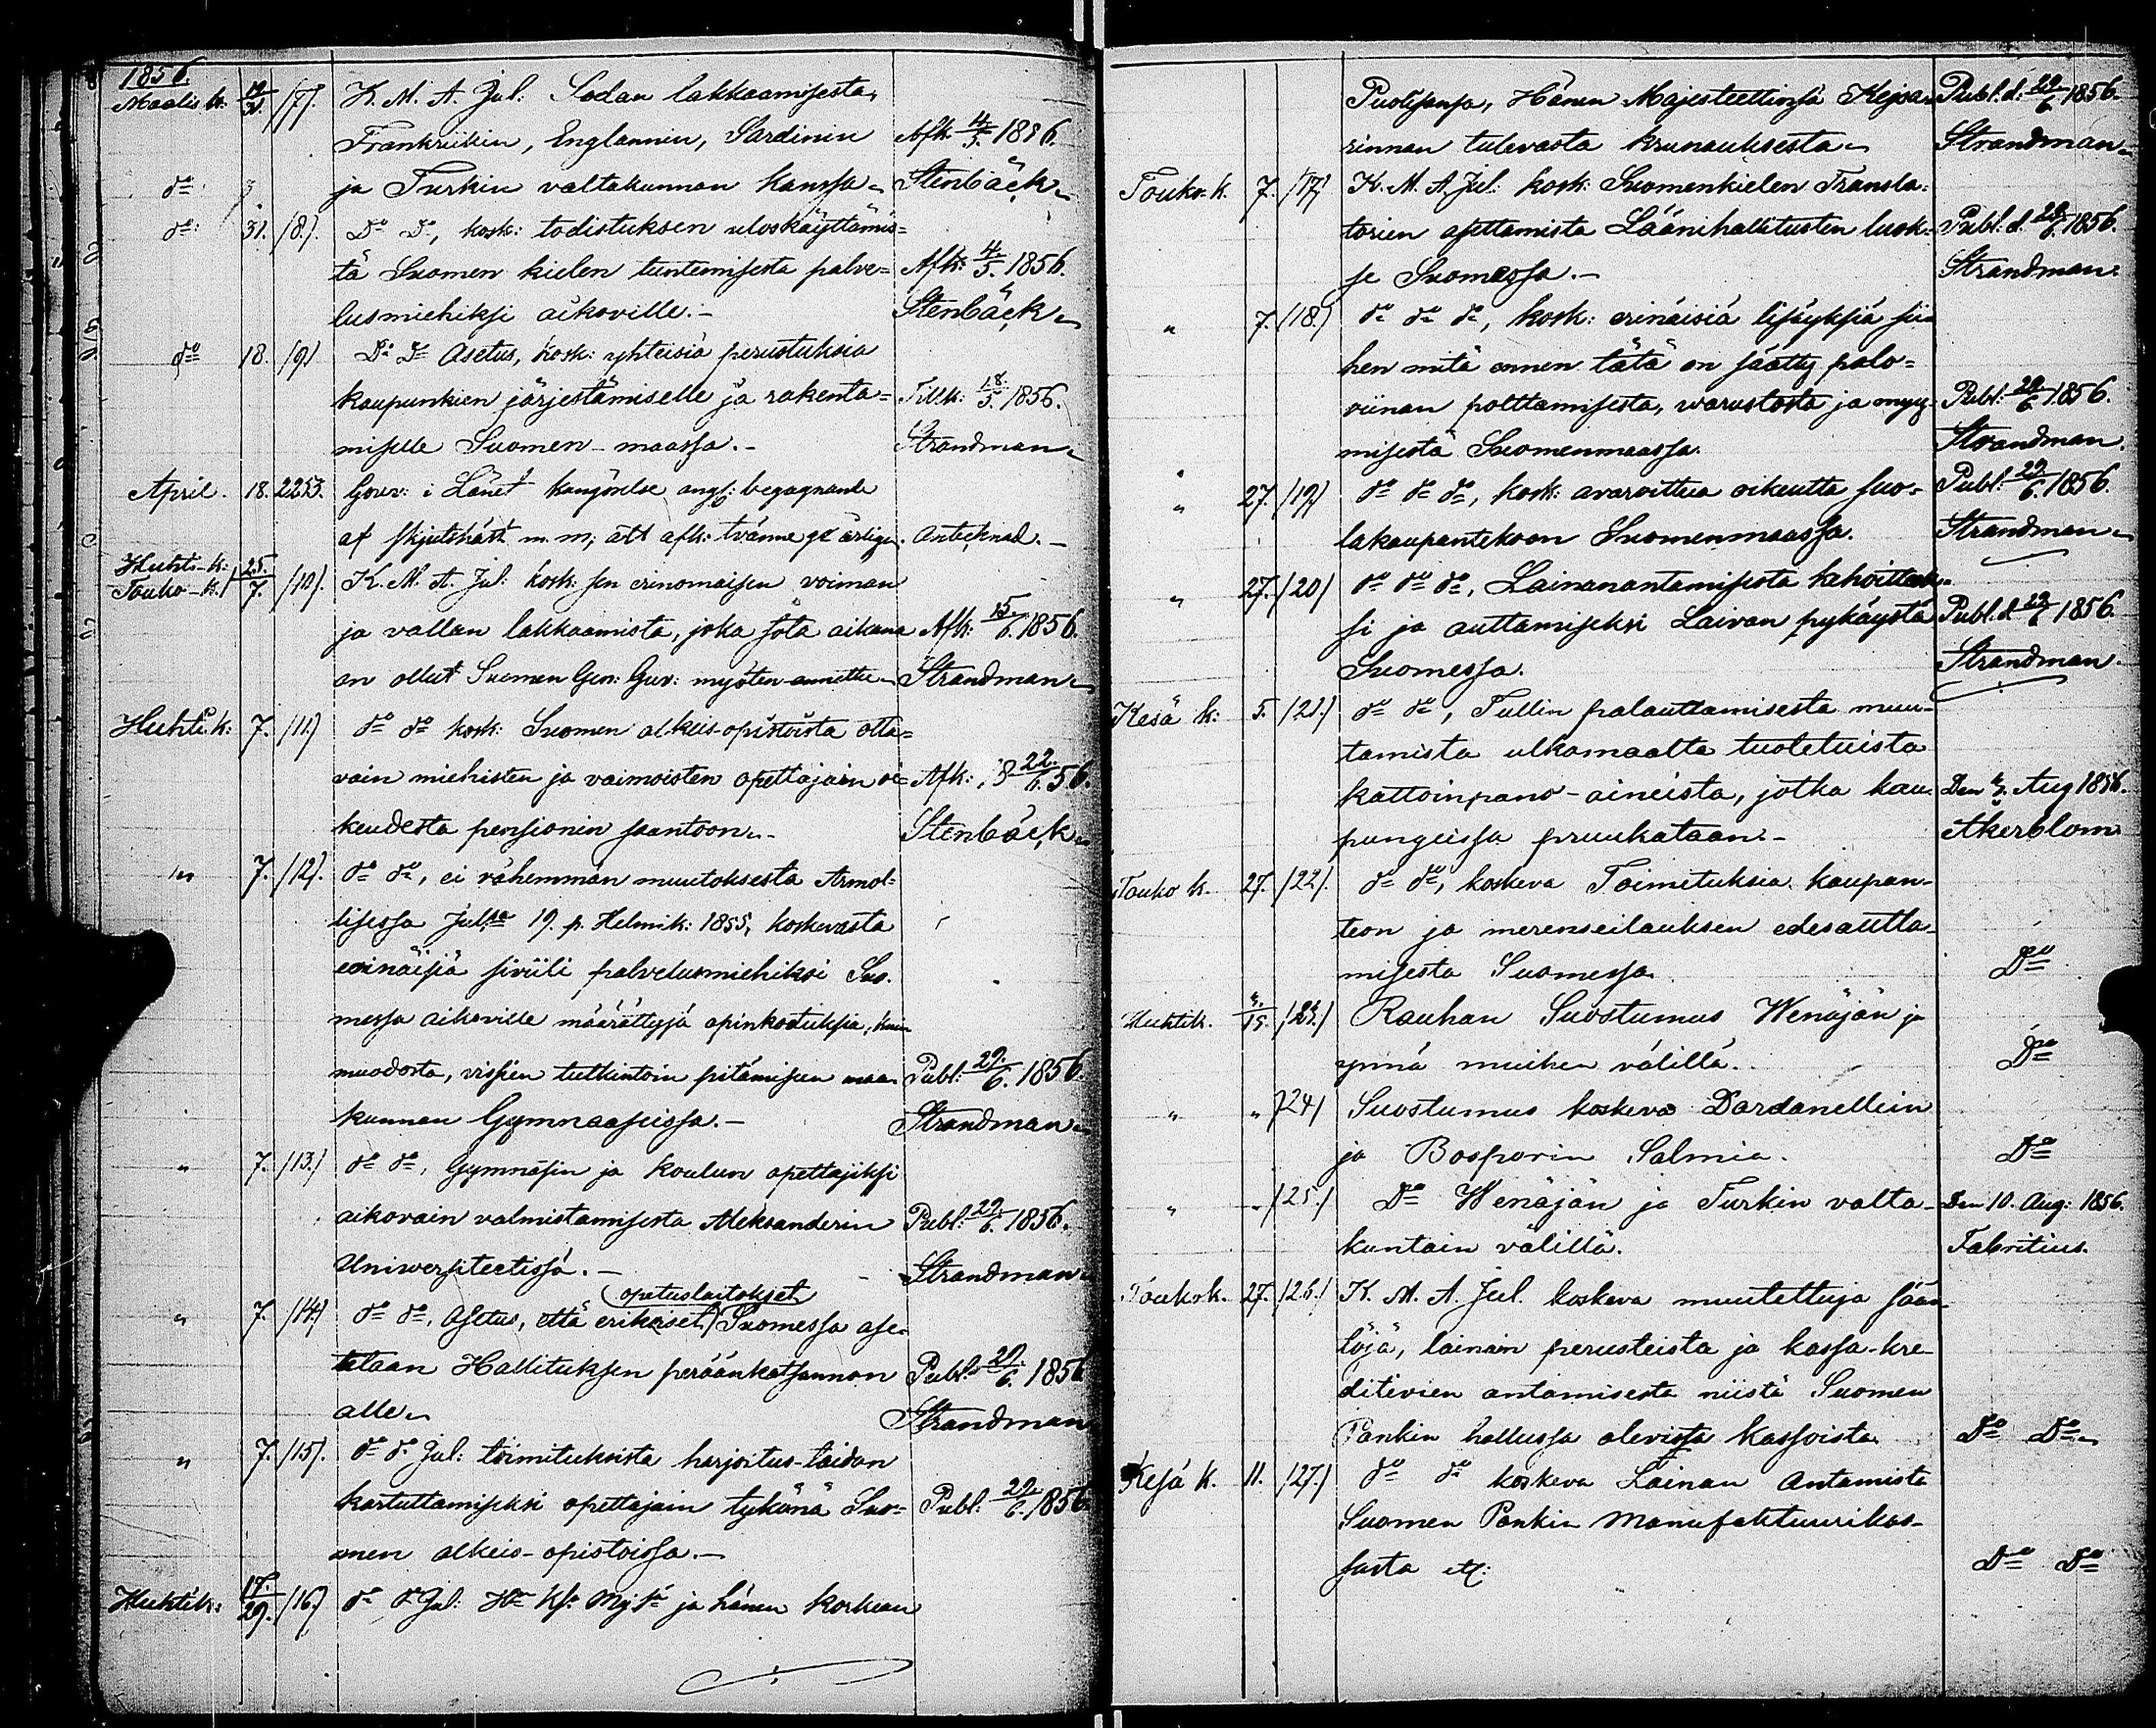 1856.
Maalis k. 19/31 /7/. K. M. A. Jul: Sodan lakkaamisesta
Frankriikin, Englannin, Sardinin Afk: 4/5. 1856.
do ja Turkin valtakunnan kanssa Stenbäck
do: 31. /8/. Do Do, kosk: todistuksen uloskäyttämis=
tä Suomen kielen tuntemisesta palve= Afk: 4/5. 1856.
lusmiehiksi aikoville.- Stenbäck
do 18. /9/ Do Do Asetus, kosk: yhteisiä perustuksia
kaupunkien järjestämiselle ja rakenta= 18/5. 1856.
miselle Suomen-maassa.- Strandman
April. 18. 2253. Guv: i Länet kungörelse ang: begagnande
af skjutshäst m. m; att afk: tvänne gr årligen. Antecknad.-
Huhti-k: Touko-k. 25./7. /10/. K. M. A. Jul: kosk: sen erinomaisen voiman
ja vallan lakkaamista, joka sota aikana Afk: 15/6. 1856.
on ollut Suomen Gen: Guv: myöten-annettu Strandman
Huhti.k: 7. /11/ do do kosk: Suomen alkeis-opistoista otta=
vain miehisten ja vaimoisten opettajain oi= Afk: 18 22/6. 56.
keudesta pensionin saantoon.- Stenbäck
" 7. /12/. do do, ei vähemmän muutoksesta Armol=
lisessa Julssa 19. p. Helmik: 1855, koskevasta
erinäisiä siviili palvelusmiehiksi Suo.
messa aikoville määrättyjä opinkoetuksia, kuin
muodosta, vissien tutkintoin pitämiseen maa= Publ: 29/6. 1856.
kunnan Gymnaaseissa.- Strandman
" 7. /13./ do do, Gymnasin ja koulun opettajiksi
aikovain valmistamisesta Aleksanderin Publ: 29/6. 1856.
Universiteetissä.- Strandman
opetuslaitokset
" 7. /14/ do do, Asetus, että erikoiset Suomessa ase=
tetaan Hallituksen peräänkatsannon Publ: 29/6. 1856
alle Strandman
" 7. /15/. do do Jul: toimituksista harjoitus-taidon
kartuttamiseksi opettajain tykönä Suo= Publ: 29/6. 1856
men alkeis-opistoissa.-
Huhtik: 17./29. /16/ do do Jul: Hn Ks: Mjt: ja hänen korkean
Puolisonsa, Hänen Majesteettinsä Keisa= Publ. d: 29/6 1856.
rinnan tulevasta krunauksesta Strandman
Touko-k. 7. /17/ K. M. A. Jul: kosk: Suomenkielen Transla=
torien asettamista Lääninhallitusten luok= Publ: d. 29/6. 1856.
se Suomessa.- Strandman.
" 7. /18./ do do do, kosk: erinäisiä lisäyksiä sii=
hen mitä ennen tätä on säätty palo=
viinan polttamisesta, warustosta ja myy= Publ: 29/6 1856.
misestä Suomenmaassa. Strandman.
" 27. /19/ do do do, kosk: avaroittua oikeutta suo= Publ: 29/6. 1856.
lakaupantekoon Suomenmaassa. Strandman
" 27. /20/ do do do, Lainanantamisesta kehoittuk=
si ja auttamiseksi Laivan pykäystä Publ. d 29/6 1856.
Suomessa. Strandman.
Kesä k: 5. /21./ do do, Tullin palauttamisesta muu=
tamista ulkomaalta tuoletuista
kattoinpano-aineista, jotka kau= Den 3. Aug 1856.
pungeissa pruukataan.- Åkerblom
Touko k. 27. /22/. do do, koskeva Toimituksia kaupan=
teon ja merenseilauksen edesautta=
misesta Suomessa. Do
Huhtik. /15. /23./ Rauhan Suostumus Wenäjän ja
ynnä muiden välillä. Do
" " /24/ Suostumus koskeva Dardanellein
ja Bosporin Salmia. Do
" " /25./ Do Wenäjän ja Turkin valta= Den 10. Aug: 1856.
kuntain välillä. Fabritius.
Toukok. 27. /26./ K. M. A. Jul. koskeva muutettuja sään=
töjä, lainain perusteista ja kassa-kre=
ditivien antamisesta niistä Suomen
Pankin hallussa olevista kassoista Do Do
Kesä k. 11. /27./ do do koskeva Lainan Antamista
Suomen Pankin Manufaktuurikas=
sasta etc: Do Do